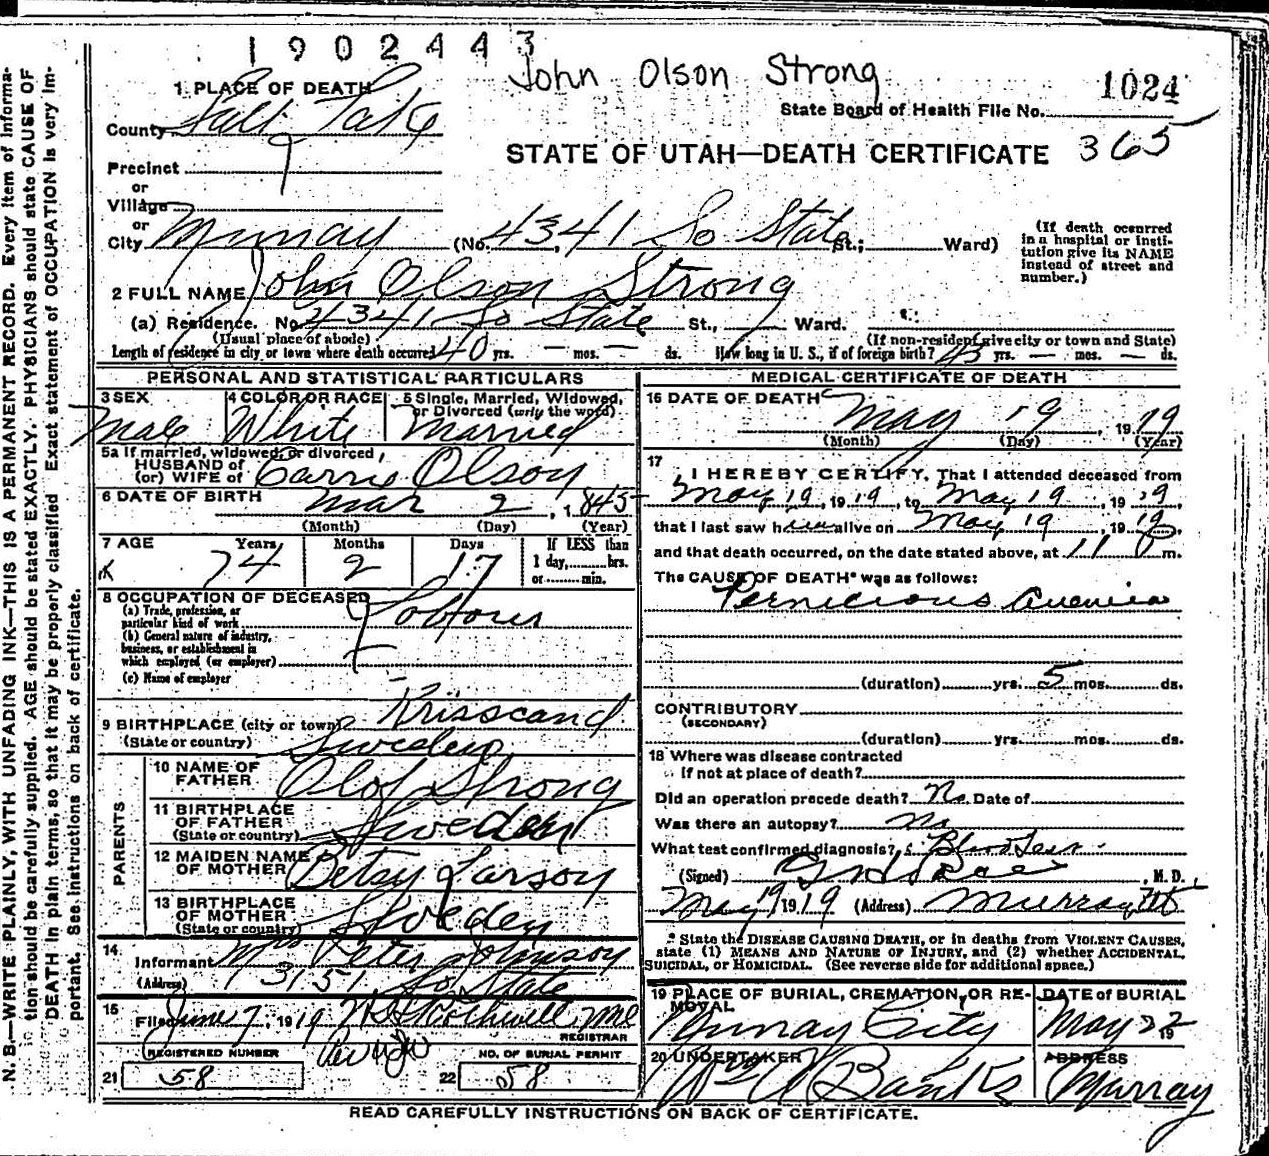 1902443
John Olson Strong
1024
1 PLACE OF DEATH
State Board of Health File No.
County Salt Lake
STATE OF UTAH—DEATH CERTIFICATE 365
Precinct
or
Village
or
City Murray (No. 4341 So State St.; Ward)
(If death occurred in a hospital or institution give its NAME instead of street and number.)
2 FULL NAME John Olson Strong
(a) Residence. No. 4341 So State St., Ward.
(Usual place of abode) (If non-resident give city or town and State)
Length of residence in city or town where death occurred 40 yrs. — mos. — ds. How long in U. S., if of foreign birth? 43 yrs. — mos. — ds.
PERSONAL AND STATISTICAL PARTICULARS
3 SEX 4 COLOR OR RACE 5 Single, Married, Widowed, or Divorced (write the word)
Male White Married
5a If married, widowed, or divorced,
HUSBAND of
(or) WIFE of Carrie Olson
6 DATE OF BIRTH Mar 2, 1845
(Month) (Day) (Year)
7 AGE Years Months Days If LESS than
74 2 17 1 day,.....hrs.
or.....min.
8 OCCUPATION OF DECEASED
(a) Trade, profession, or
particular kind of work
(b) General nature of industry,
business, or establishment in
which employed (or employer)
(c) Name of employer
9 BIRTHPLACE (city or town)
(State or country) Sweden
PARENTS
10 NAME OF FATHER Olof Strong
11 BIRTHPLACE OF FATHER
(State or country) Sweden
12 MAIDEN NAME OF MOTHER Betsy Larson
13 BIRTHPLACE OF MOTHER
(State or country) Sweden
14
Informant Mrs Peter Johnson
(Address) 3151 So State
15
Filed June 7, 1919
REGISTRAR
REGISTERED NUMBER NO. OF BURIAL PERMIT
21 58 22 58
MEDICAL CERTIFICATE OF DEATH
16 DATE OF DEATH
May 19, 1919
(Month) (Day) (Year)
17
I HEREBY CERTIFY, That I attended deceased from
May 19, 1919, to May 19, 1919,
that I last saw him alive on May 19, 1919,
and that death occurred, on the date stated above, at 11 m.
The CAUSE OF DEATH* was as follows:
Pernicious Anemia
(duration) yrs. 5 mos. ds.
CONTRIBUTORY
(SECONDARY)
(duration) yrs. mos. ds.
18 Where was disease contracted
if not at place of death?
Did an operation precede death? No Date of
Was there an autopsy? No
What test confirmed diagnosis? Blood Test
(Signed) , M. D.
May 19, 1919 (Address) Murray Ut
* State the DISEASE CAUSING DEATH, or in deaths from VIOLENT CAUSES,
state (1) MEANS AND NATURE OF INJURY, and (2) whether ACCIDENTAL,
SUICIDAL, or HOMICIDAL. (See reverse side for additional space.)
19 PLACE OF BURIAL, CREMATION, OR REMOVAL DATE of BURIAL
Murray City May 22 19
20 UNDERTAKER ADDRESS
Murray
READ CAREFULLY INSTRUCTIONS ON BACK OF CERTIFICATE.
N. B.—WRITE PLAINLY, WITH UNFADING INK—THIS IS A PERMANENT RECORD. Every item of informa-
tion should be carefully supplied. AGE should be stated EXACTLY. PHYSICIANS should state CAUSE OF
DEATH in plain terms, so that it may be properly classified. Exact statement of OCCUPATION is very im-
portant. See instructions on back of certificate.